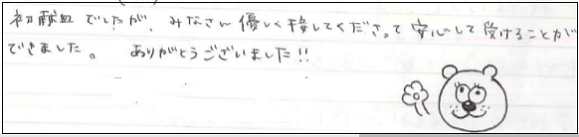 初献血でしたが、みなさん優しく接してくださって安心して受けることが
できました。 ありがとうございました!!